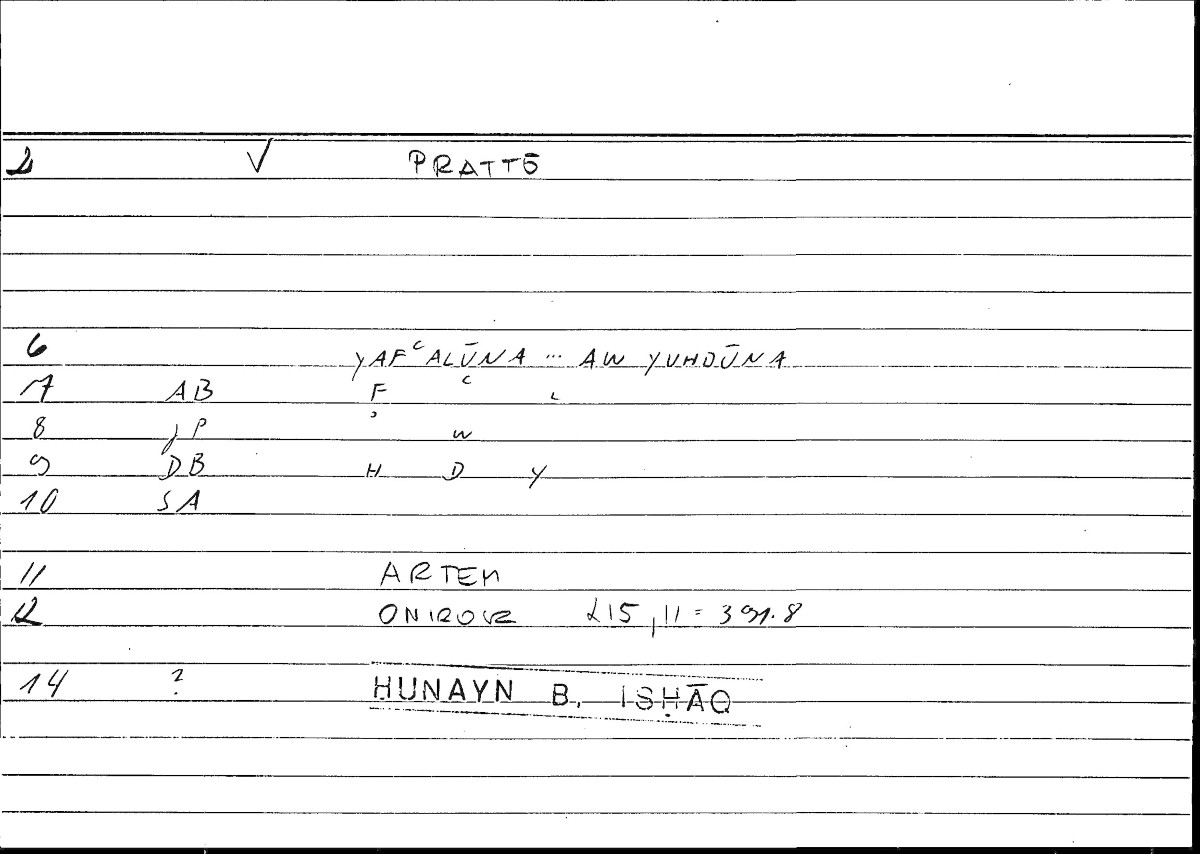 2 √ PRATTŌ
6 YAFᶜALŪNA ... AW YUHDŪNA
7 AB F ᶜ L
8 JP ʾ W
9 DB H D Y
10 SA
11 ARTEM
12 ONIROCR 215,11 = 391.8
14 ? HUNAYN B. ISḤĀQ